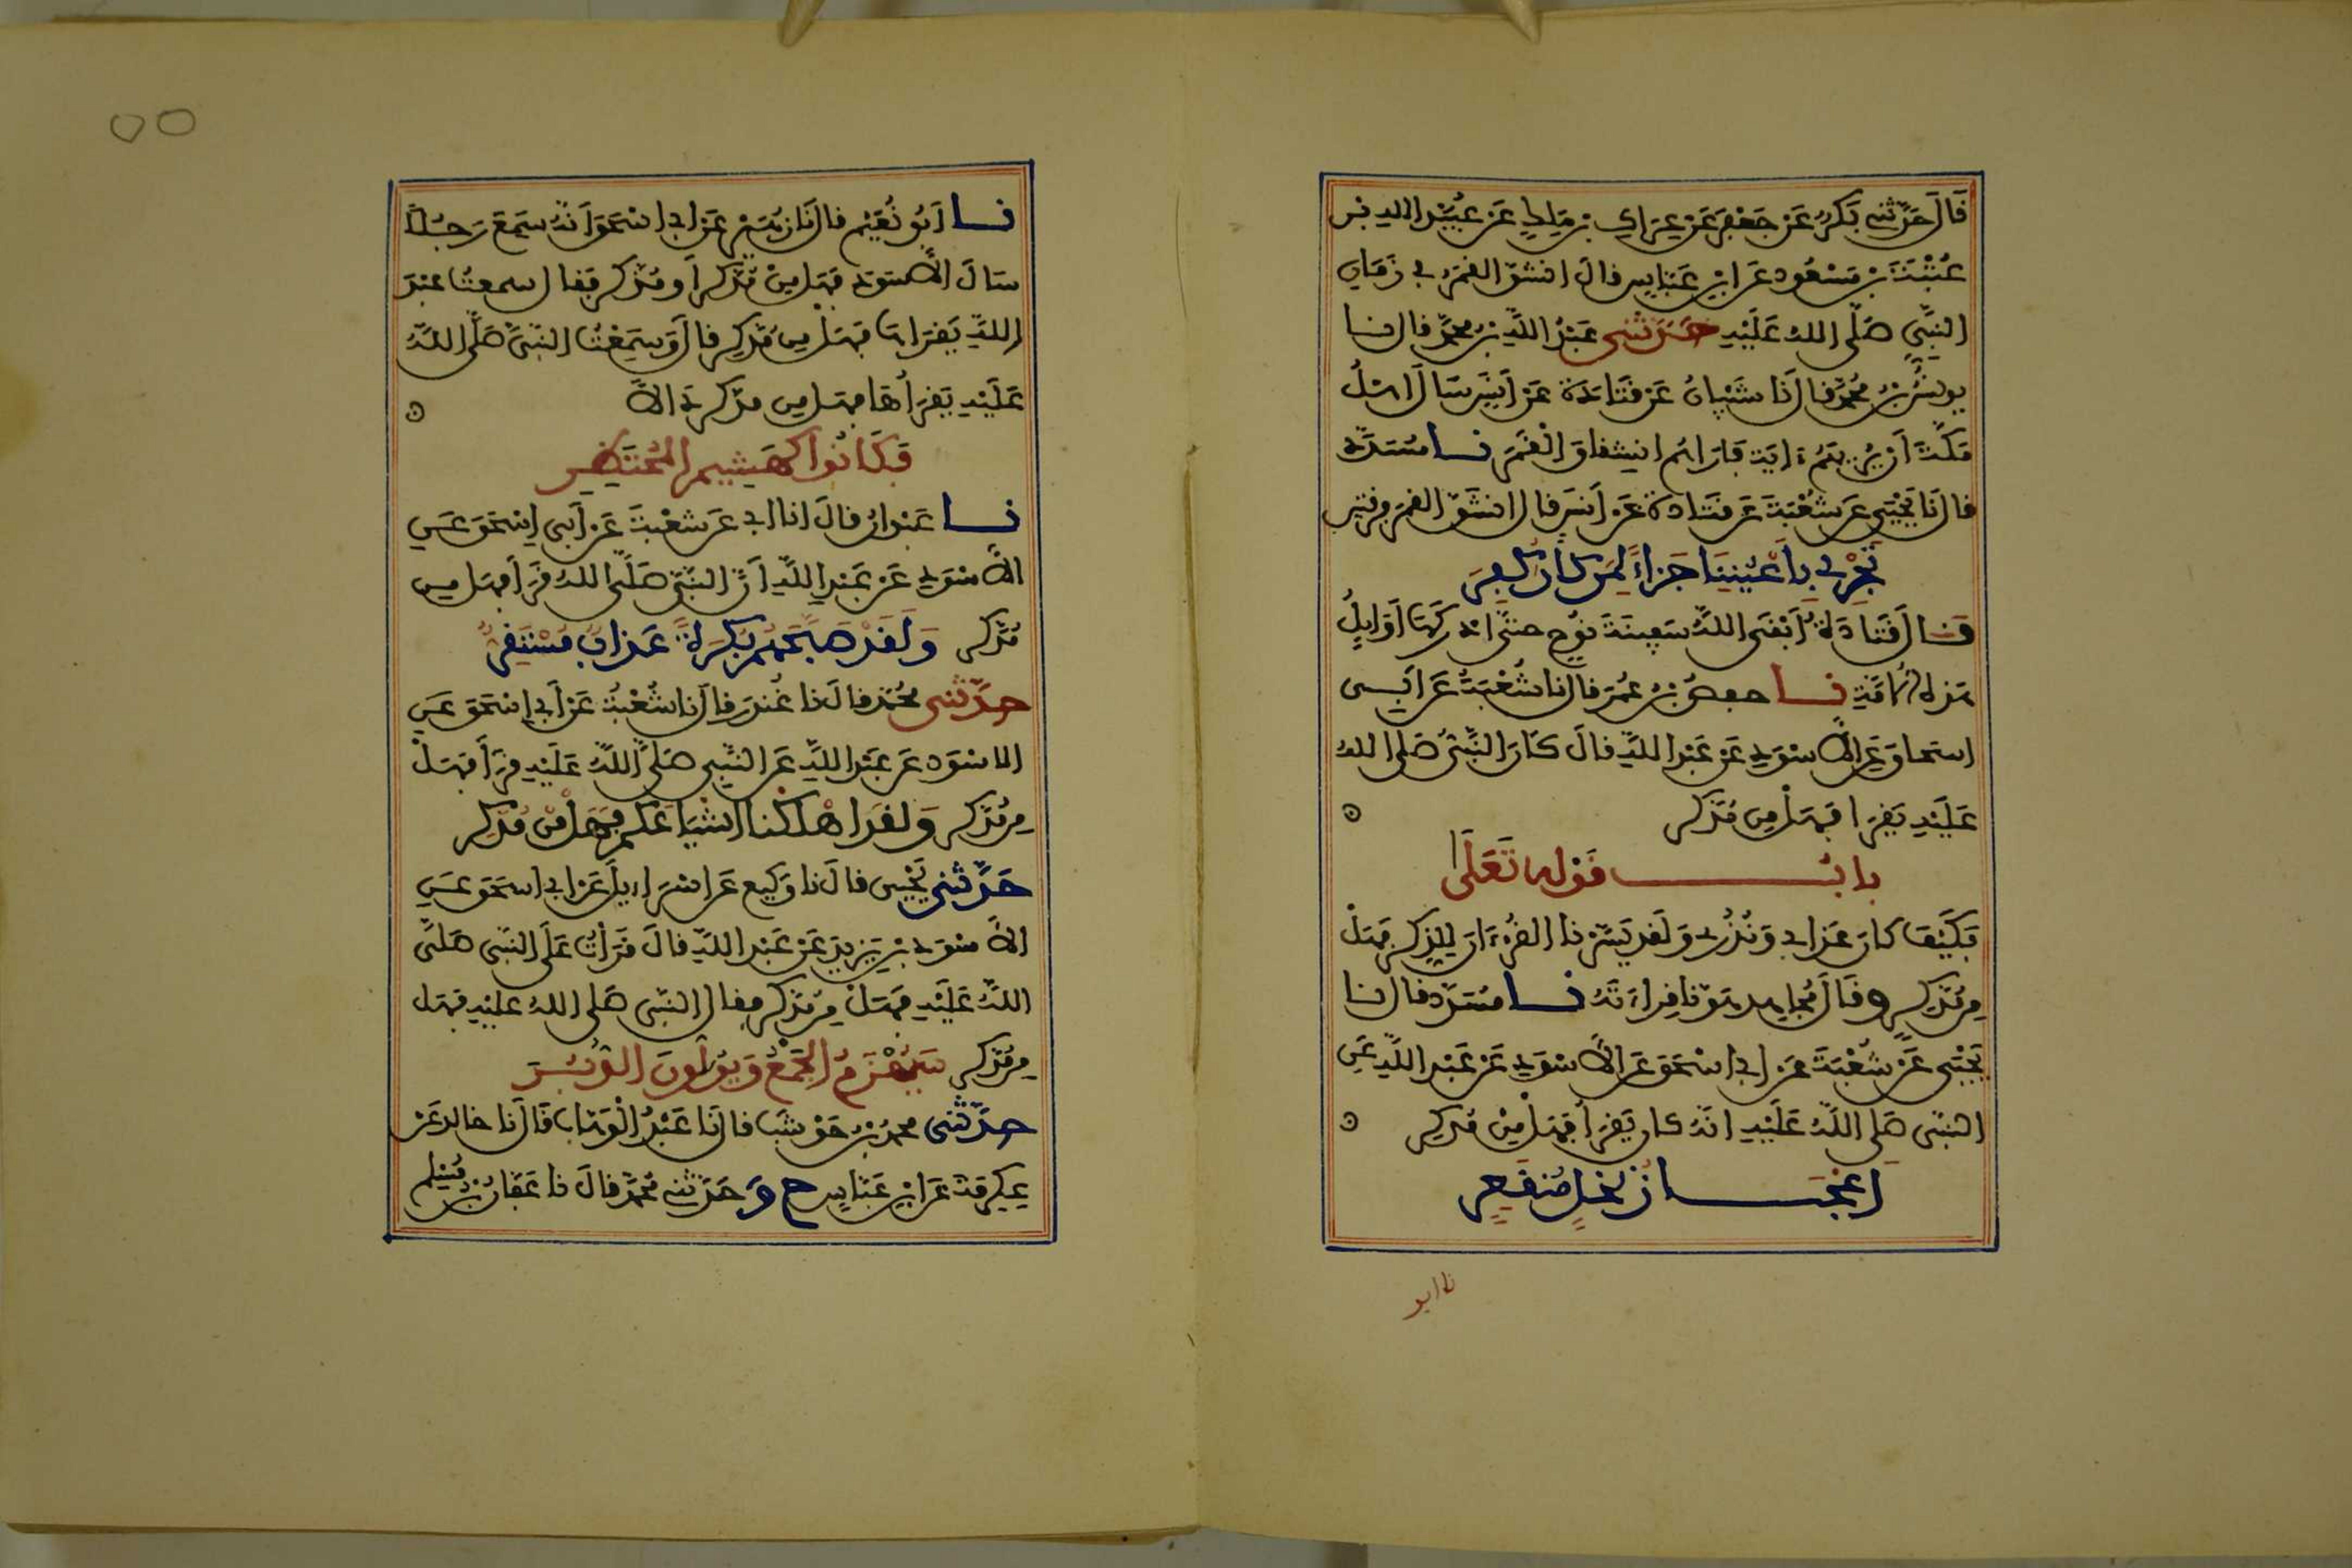 قَالَ حَدَّثني بَكرٌ عَن جَعْفَرٍ عَن عِرَاكِ بْنِ مَالِكٍ عَن عُبَيْدِ اللهِ بْنِ
عُتْبَةَ بْنِ مَسْعُودٍ عَنِ ابْنِ عَبَّاسٍ قالَ انشقّ القمَرُ في زَمَانِ
النبِّيِّ صَلَّى اللهُ عَلَيْهِ حَدَّثَنِي عَبْدُ اللَّهِ بْنُ محمَّدٍ قال نا
يونسُ بْنُ مُحَمَّدٍ قال نَا شَيْبَانُ عَن قَتَادَة عَن أنَسٍ سَالَ أهْلُ
مَكَّةَ أن يُرِيَهُمْ ءايَةً فَأرَاهُم انشِقاقَ الْقَمَرِ نا مُسَدَّدٌ
قال نَا يَحْيَى عَن شُعْبَةَ عَن قَتَادةَ عَن أنَسٍ قال انشَقَّ القمَرُ فِرقتينِ
تَجْرِي بِأَعْيُنِنَا جَزَاءً لِمَن كَانَ كُفِرَ
قَالَ قَتَادَةُ أَبْقَى اللهُ سَفِينَةَ نُوحٍ حتَّى أدْرَكَهَا أوَايِلُ
هَذِهِ الأُمَّةِ نا حفصُ بْنُ عُمَرَ قال نا شُعْبَةُ عَن أَبِي
اسحاقَ عَنِ الأَسْوَدِ عَن عَبْدِ اللَّهِ قالَ كَانَ النَّبِيُّ صَلى اللهُ
عَلَيْهِ يَقرَأ فَهَلْ مِن مُدَّكِر
بابُ قَوْلِهِ تَعَلَى
فَكَيْفَ كَانَ عَذَابِي وَنُذُرِ وَلَقد يَسَّرْنا القُرْءَانَ لِلذِّكرِ فَهَلْ
مِن مُدَّكِرٍ وقَالَ مُجاهد هَوَّنا قِراءَتَهُ نا مُسَدَّد قال نا
يَحْيَى عَن شُعْبَةَ عَن أبي إسْحَقَ عَنِ الأَسْوَدِ عَن عَبْدِ اللَّهِ عَنِ
النبّي صَلى اللَّهُ عَلَيْهِ انَّهُ كان يَقرَأُ فَهَلْ مِن مُدَّكِرٍ
أَعْجَازُ نَخلٍ مُنقَعِرٍ
نا ابو
٥٥
نا أبُو نُعَيْمٍ قال نا زُهَيْرٌ عَن أبي إسْحَقَ أنَّهُ سَمِعَ رَجُلاً
سَالَ الأَسْوَدَ فَهَل مِنْ مُدَّكر أو مُذَّكر فقال سمعتُ عَبْدَ
اللَّهِ يَقرَأها فَهَلْ مِن مُدَّكِر قالَ وَسَمِعْتُ النَّبيَّ صَلَّى اللهُ
عَلَيْهِ يَقرَأُهَا فهَل مِن مدَّكر دَالاً
فَكَانُوا كَهَشِيمِ المُحْتَظِرِ
نا عَبْدانُ قالَ انا ابي عَن شعْبَةَ عَن أبي إسْحَقَ عَنِ
الأَسْوَدِ عَن عَبْدِ اللَّهِ أنَّ النبَّيَّ صَلَّى اللهُ قَرَأ فهَل مِن
مُدَّكر وَلَقَدْ صَبَّحَهُم بُكْرَةً عَذابٌ مُسْتَقِرٌّ
حدَّثَنِي مُحَمَّد قالَ نا غُندَر قال نا شُعْبَةُ عَن أبي إسْحَقَ عَنِ
الاسْوَدِ عَن عَبْدِ اللَّهِ عَنِ النَّبِي صَلَّى اللَّهُ عَلَيْهِ قَرَأ فَهَلْ
مِن مُدَّكر وَلَقَد أهْلَكْنا أشْيَاعَكُم فَهَلْ مِن مُدَّكِر
حَدَّثني يَحْيَى قالَ نا وَكِيع عَن إسْرَاءيلَ عَن أبي إسحَقَ عَنِ
الأَسْوَدِ بْنِ يَزِيدَ عَن عَبْدِ اللَّهِ قالَ قَرَأتُ عَلَى النَّبِي صَلَّى
اللَّهُ عَلَيْهِ فَهَلْ مِن مُذَّكر فقال النَّبِي صَلى اللهُ عليْهِ فهَل
مِن مُدَّكر سَيُهْزَمُ الجَمْعُ وَيُوَلُّونَ الدُّبُرَ
حدَّثني محمدُ بْنُ حَوْشَب قال نَا عَبْدُ الْوَهَّاب قَالَ نا خالد عَن
عِكْرِمَةَ عَنِ ابْنِ عَبَّاسٍ ح وَحَدَّثني مُحَمَّد قالَ نا عَفَّانُ بْنُ مُسْلِم